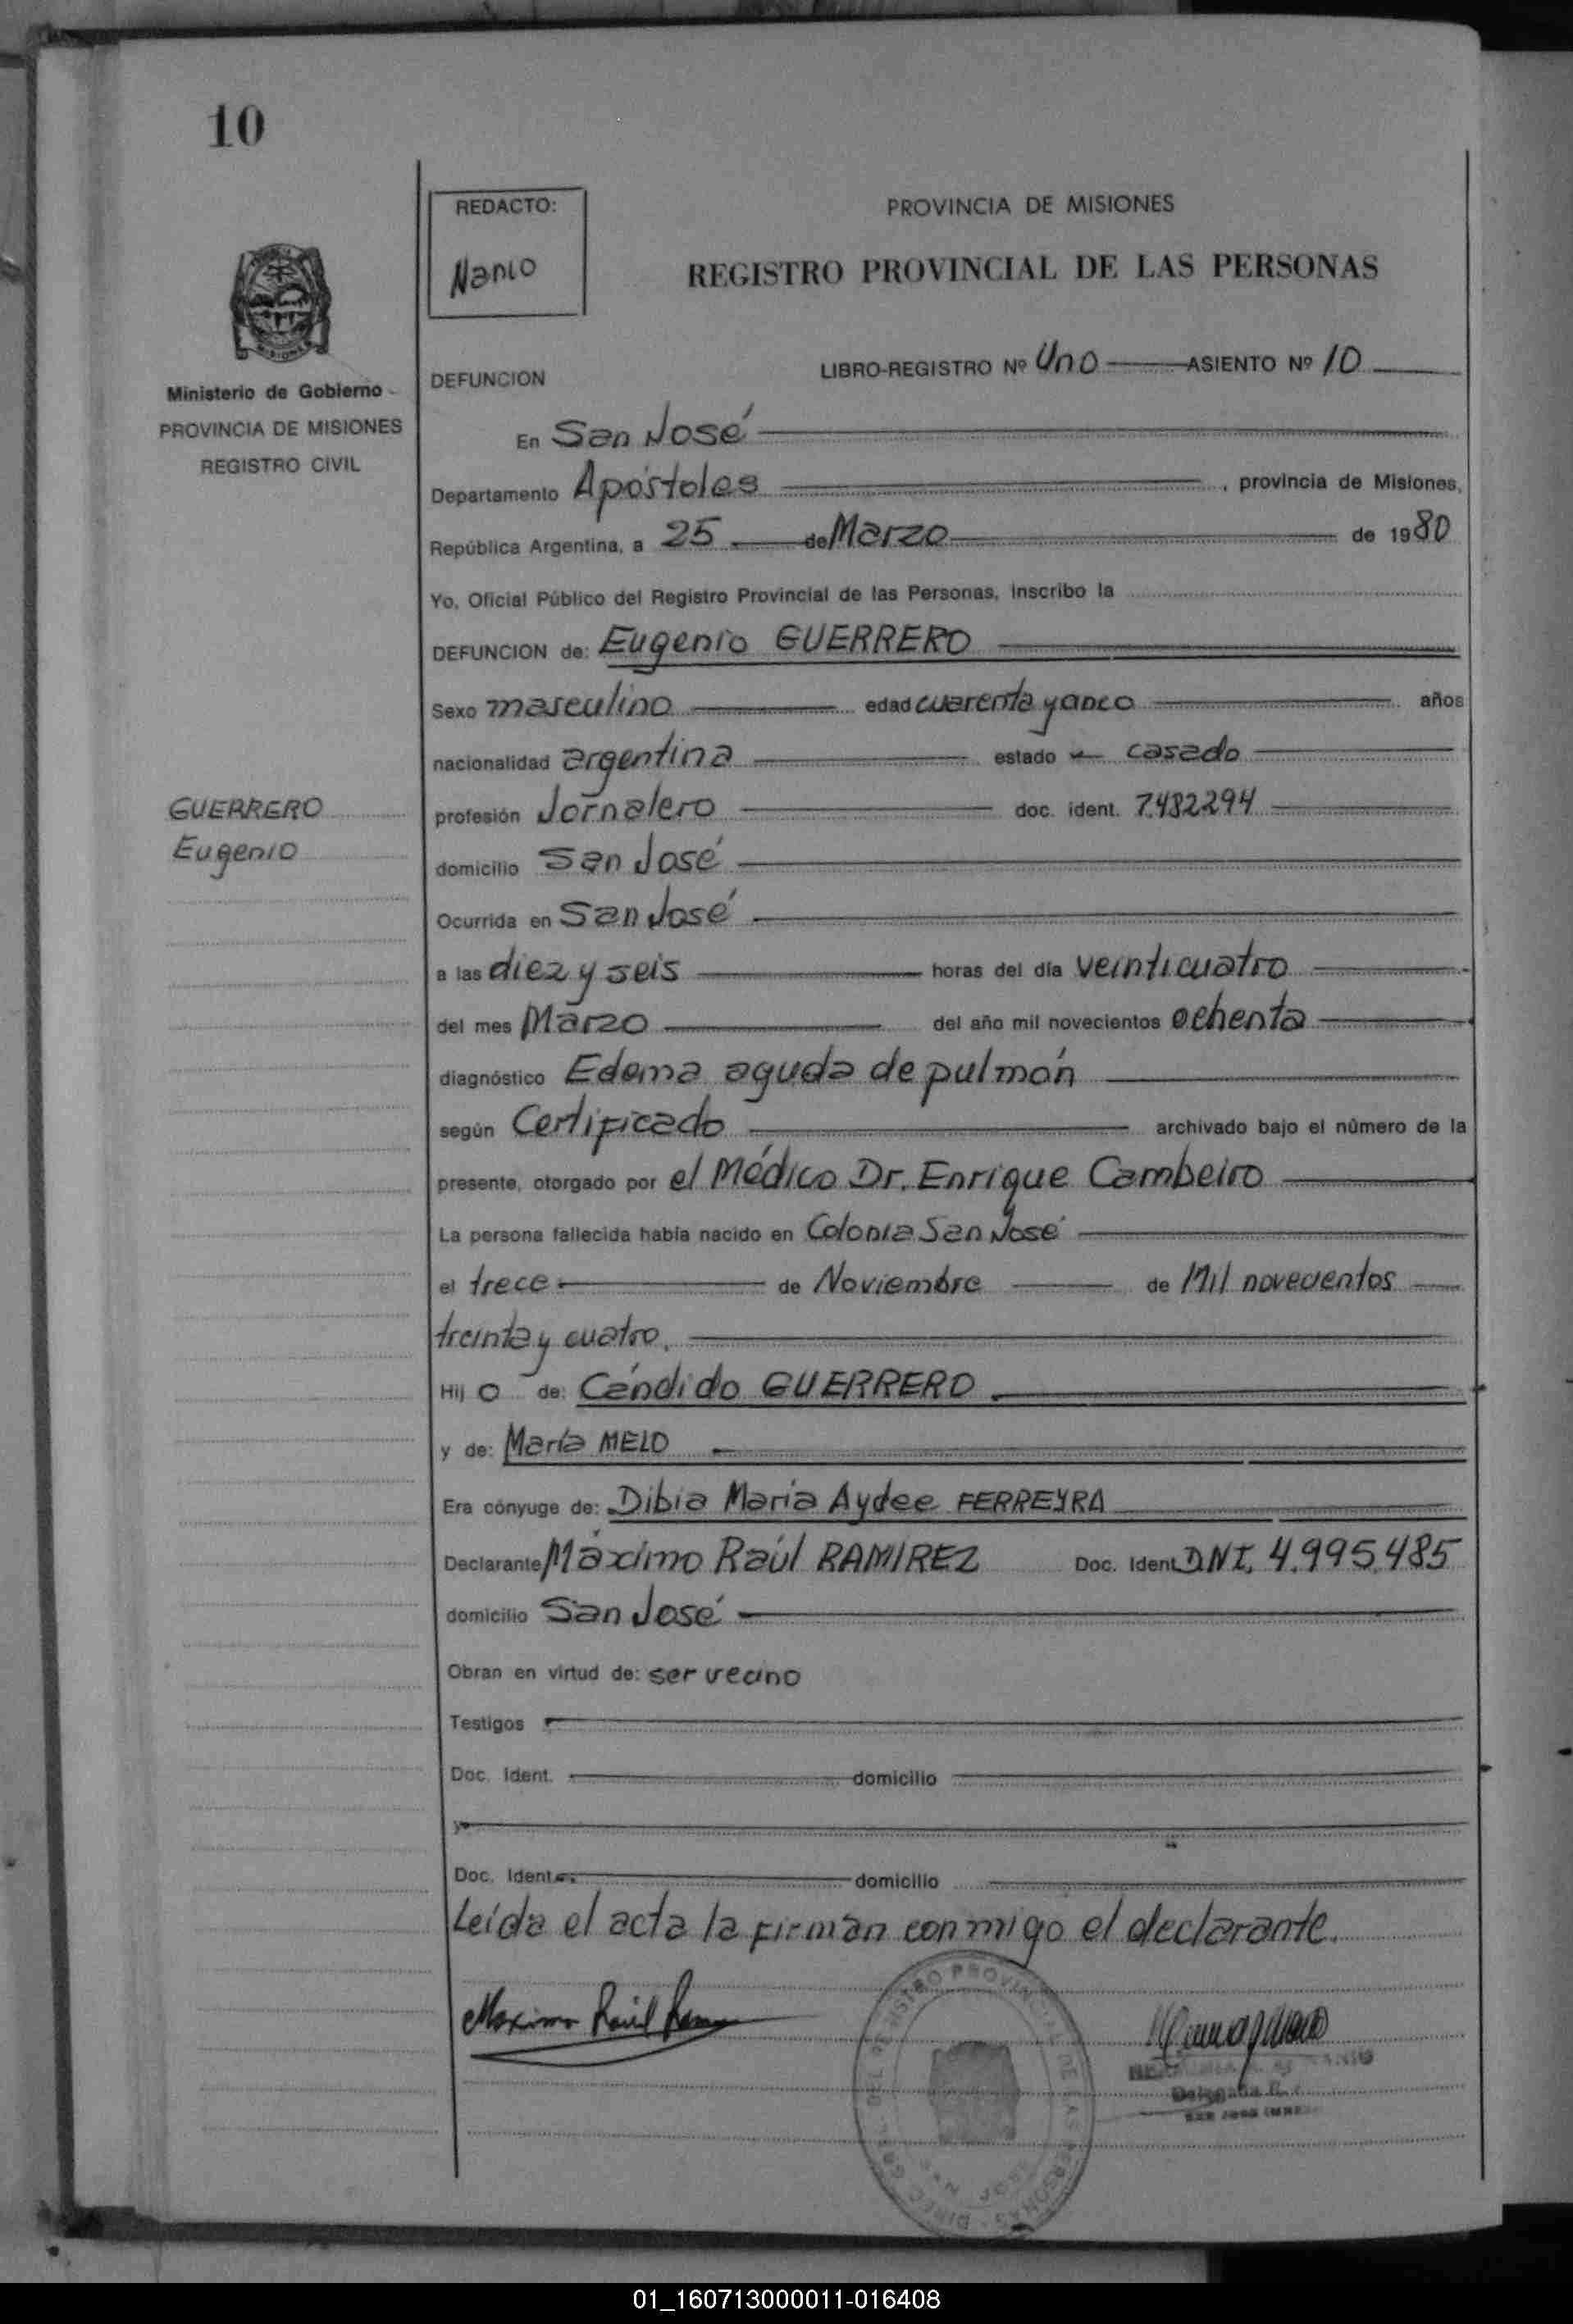 10
REDACTO:
Nanio
PROVINCIA DE MISIONES
REGISTRO PROVINCIAL DE LAS PERSONAS
Ministerio de Gobierno
PROVINCIA DE MISIONES
REGISTRO CIVIL
DEFUNCION
LIBRO-REGISTRO Nº Uno ASIENTO Nº 10
En San José
Departamento Apóstoles, provincia de Misiones,
República Argentina, a 25 de Marzo de 1980
Yo, Oficial Público del Registro Provincial de las Personas, inscribo la
DEFUNCION de: Eugenio GUERRERO
Sexo masculino edad cuarenta y cinco años
nacionalidad argentina estado casado
GUERRERO
Eugenio
profesión Jornalero doc. ident. 7.482.294
domicilio San José
Ocurrida en San José
a las diez y seis horas del día veinticuatro
del mes Marzo del año mil novecientos ochenta
diagnóstico Edema aguda de pulmón
según Certificado archivado bajo el número de la
presente, otorgado por el Médico Dr. Enrique Cambeiro
La persona fallecida había nacido en Colonia San José
el trece de Noviembre de Mil novecientos
treinta y cuatro.
Hij o de: Cándido GUERRERO
y de: María MELO
Era cónyuge de: Dibia María Aydee FERREYRA
Declarante Máximo Raúl RAMIREZ Doc. Ident. DNI. 4.995.485
domicilio San José
Obran en virtud de: ser vecino
Testigos
Doc. Ident. domicilio
y
Doc. Ident. domicilio
Leída el acta la firman conmigo el declarante.
Maximo Raúl
DIREC. GRAL. DEL REGISTRO PROVINCIAL DE LAS PERSONAS
SAN JOSE
Delegada
SAN JOSE
01_160713000011-016408